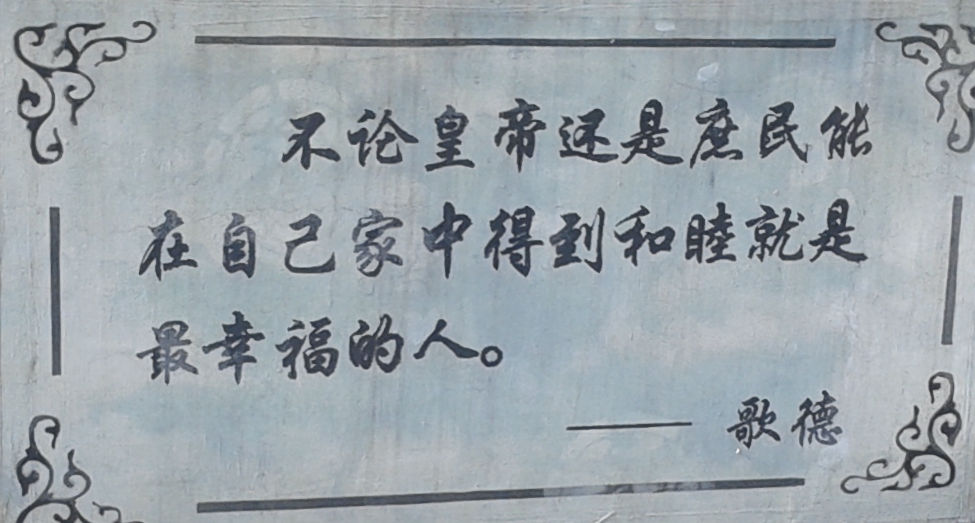 不论皇帝还是庶民能
在自己家中得到和睦就是
最幸福的人。
—— 歌德